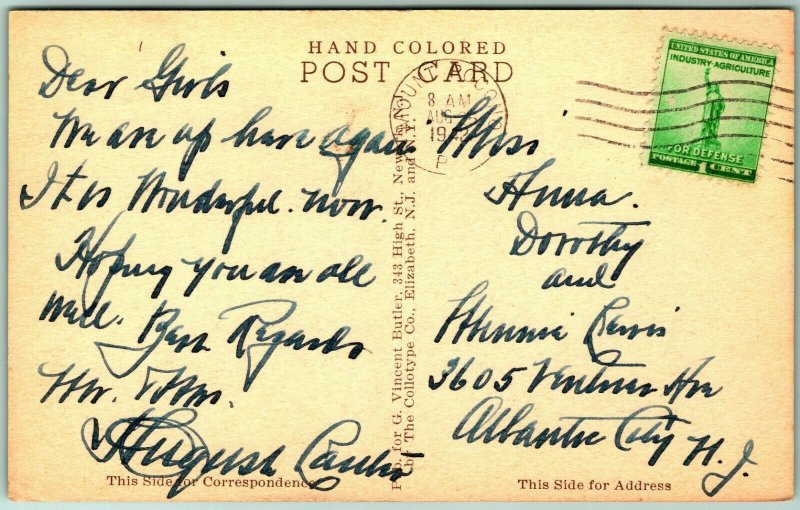 HAND COLORED
POST CARD
Dear Girls
We are up here again
It is Wonderful. now.
Hoping you are all
well. Best Regards
Mr. & Mrs.
August
This Side for Correspondence
Pub. for G. Vincent Butler, 343 High St., Newark, N.J.
by The Collotype Co., Elizabeth, N.J. and N.Y.
MOUNT POCONO
8 AM
AUG
P
UNITED STATES OF AMERICA
INDUSTRY·AGRICULTURE
FOR DEFENSE
POSTAGE 1 CENT
Miss
Anna.
Dorothy
and
Minnie
3605 Ventnor Ave
Atlantic City N. J.
This Side for Address